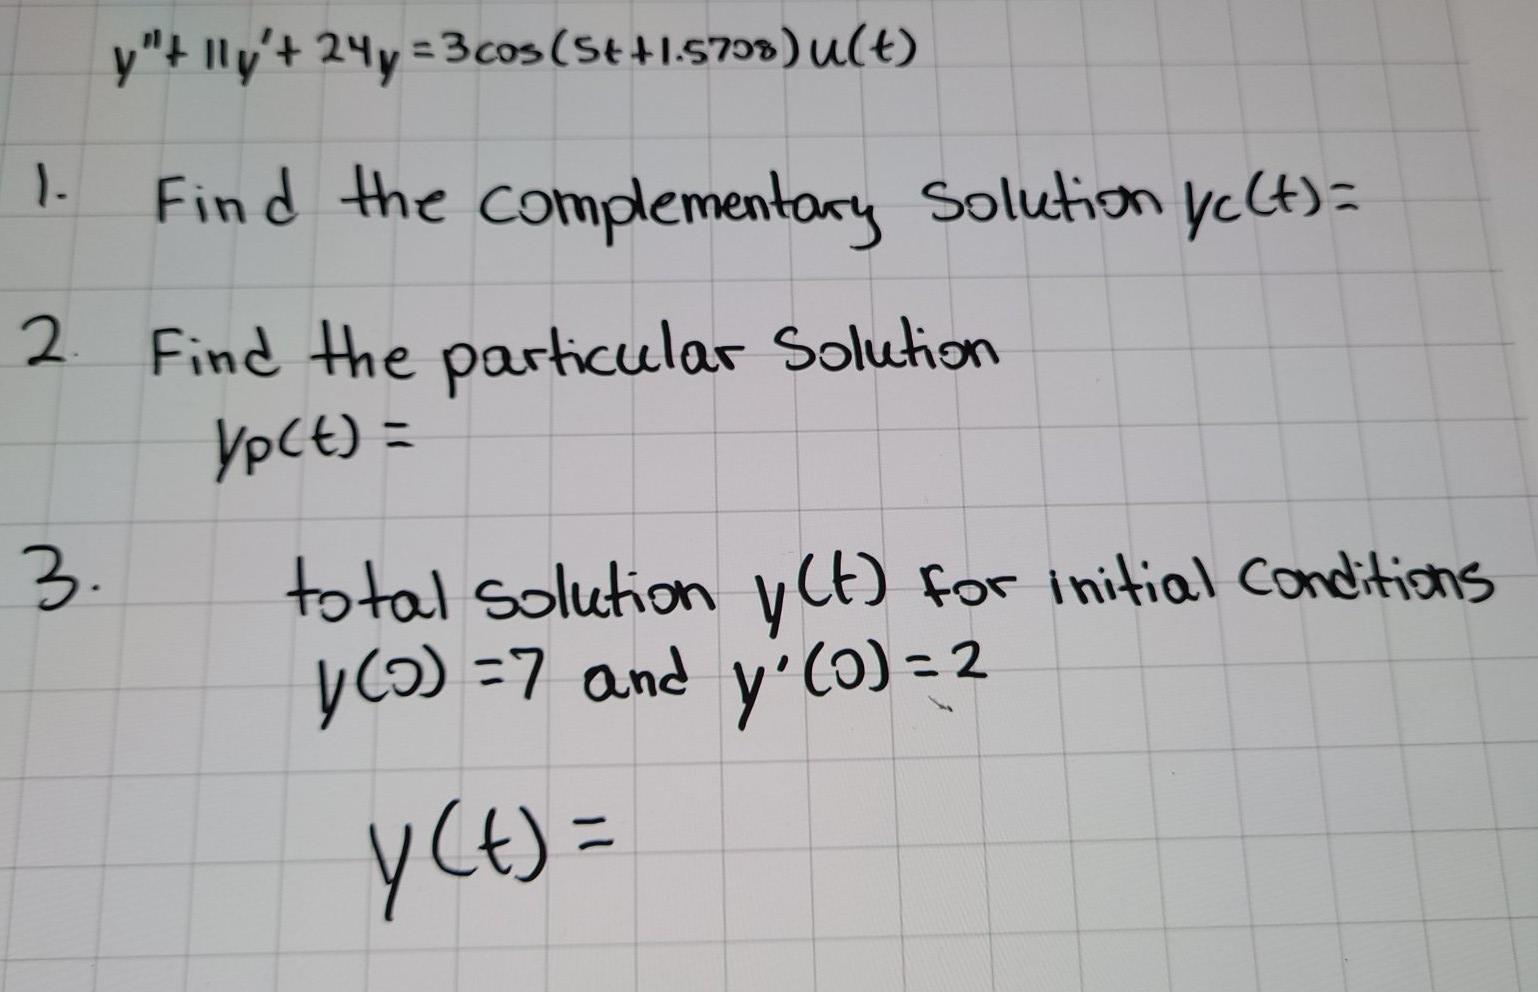 y"+ 11y'+ 24y = 3cos(5t+1.5708)u(t)
1. Find the complementary solution yc(t)=
2. Find the particular solution
yp(t) =
3. total solution y(t) for initial conditions
y(0) = 7 and y'(0) = 2
y(t) =